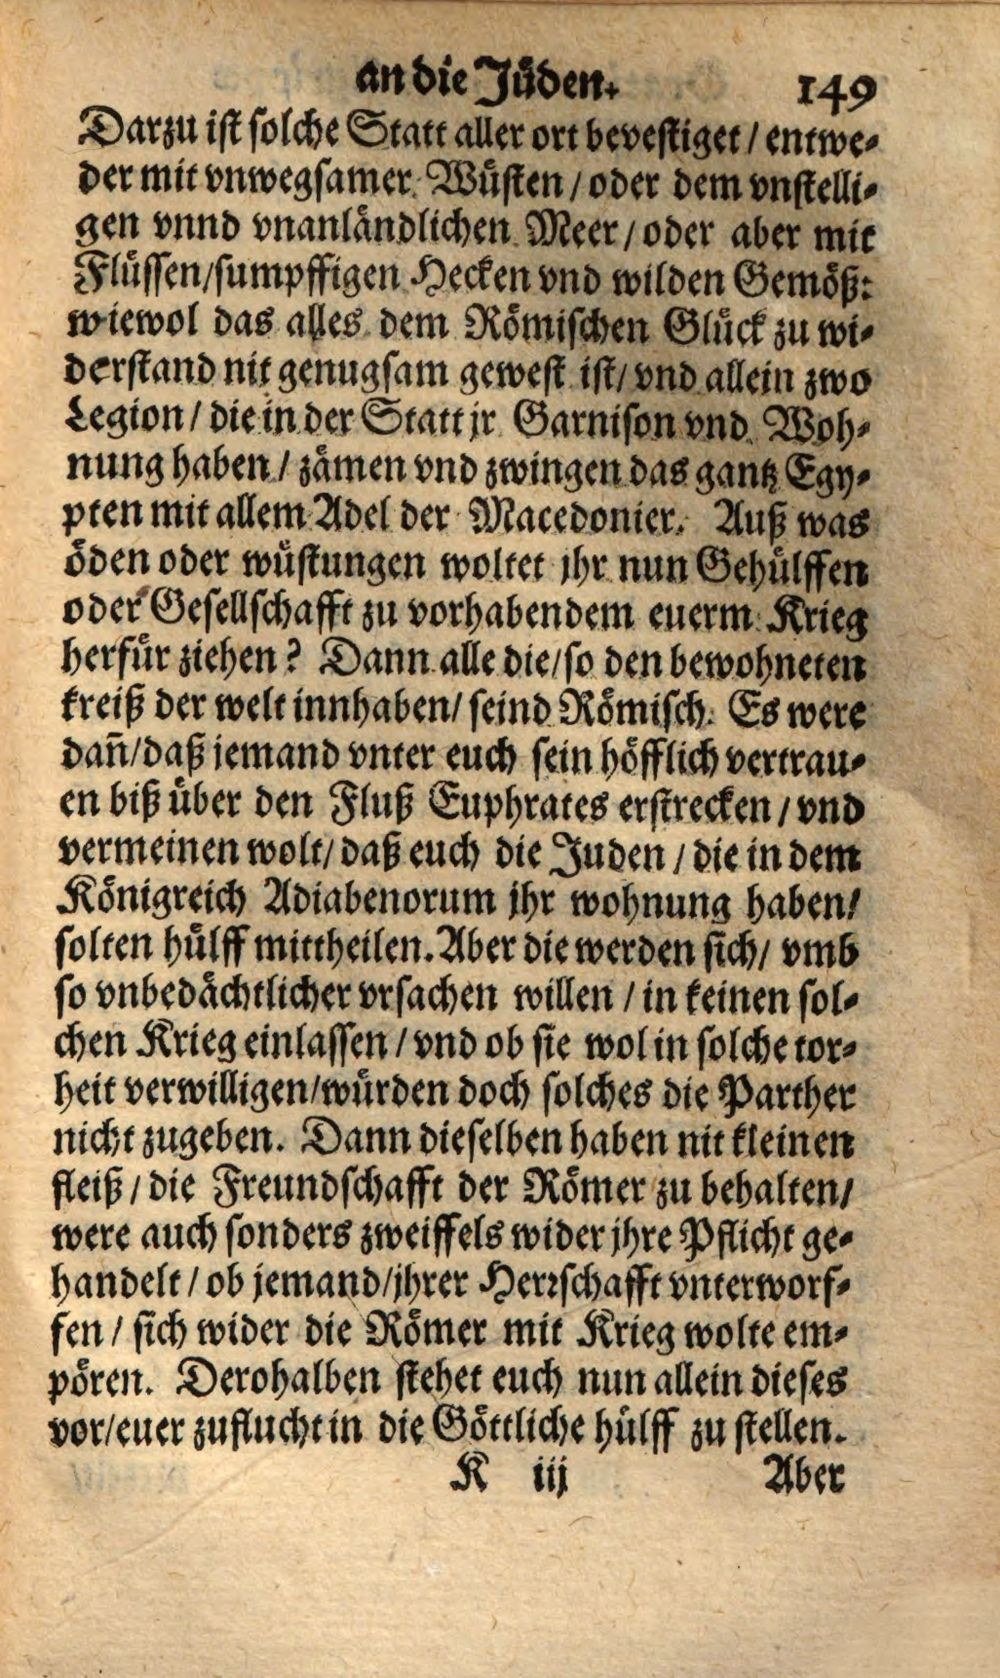 an die Jüden. 149
Darzu ist solche Statt aller ort bevestiget / entwe-
der mit vnwegsamer Wüsten / oder dem vnstelli-
gen vnnd vnanländlichen Meer / oder aber mit
Flüssen/sumpffigen Hecken vnd wilden Gemöß:
wiewol das alles dem Römischen Glück zu wi-
derstand nit genugsam gewest ist/ vnd allein zwo
Legion / die in der Statt jr Garnison vnd Woh-
nung haben / zämen vnd zwingen das gantz Egy-
pten mit allem Adel der Macedonier. Auß was
öden oder wüstungen woltet jhr nun Gehülffen
oder Gesellschafft zu vorhabendem euerm Krieg
herfür ziehen? Dann alle die/so den bewohneten
kreiß der welt innhaben/ seind Römisch. Es were
dañ/daß jemand vnter euch sein höfflich vertrau-
en biß über den Fluß Euphrates erstrecken / vnd
vermeinen wolt/ daß euch die Juden / die in dem
Königreich Adiabenorum jhr wohnung haben/
solten hülff mittheilen. Aber die werden sich/ vmb
so vnbedächtlicher vrsachen willen / in keinen sol-
chen Krieg einlassen / vnd ob sie wol in solche tor-
heit verwilligen/würden doch solches die Parther
nicht zugeben. Dann dieselben haben nit kleinen
fleiß / die Freundschafft der Römer zu behalten/
were auch sonders zweiffels wider jhre Pflicht ge-
handelt / ob jemand/jhrer Herrschafft vnterworf-
fen / sich wider die Römer mit Krieg wolte em-
pören. Derohalben stehet euch nun allein dieses
vor/euer zuflucht in die Göttliche hülff zu stellen.
K iij Aber